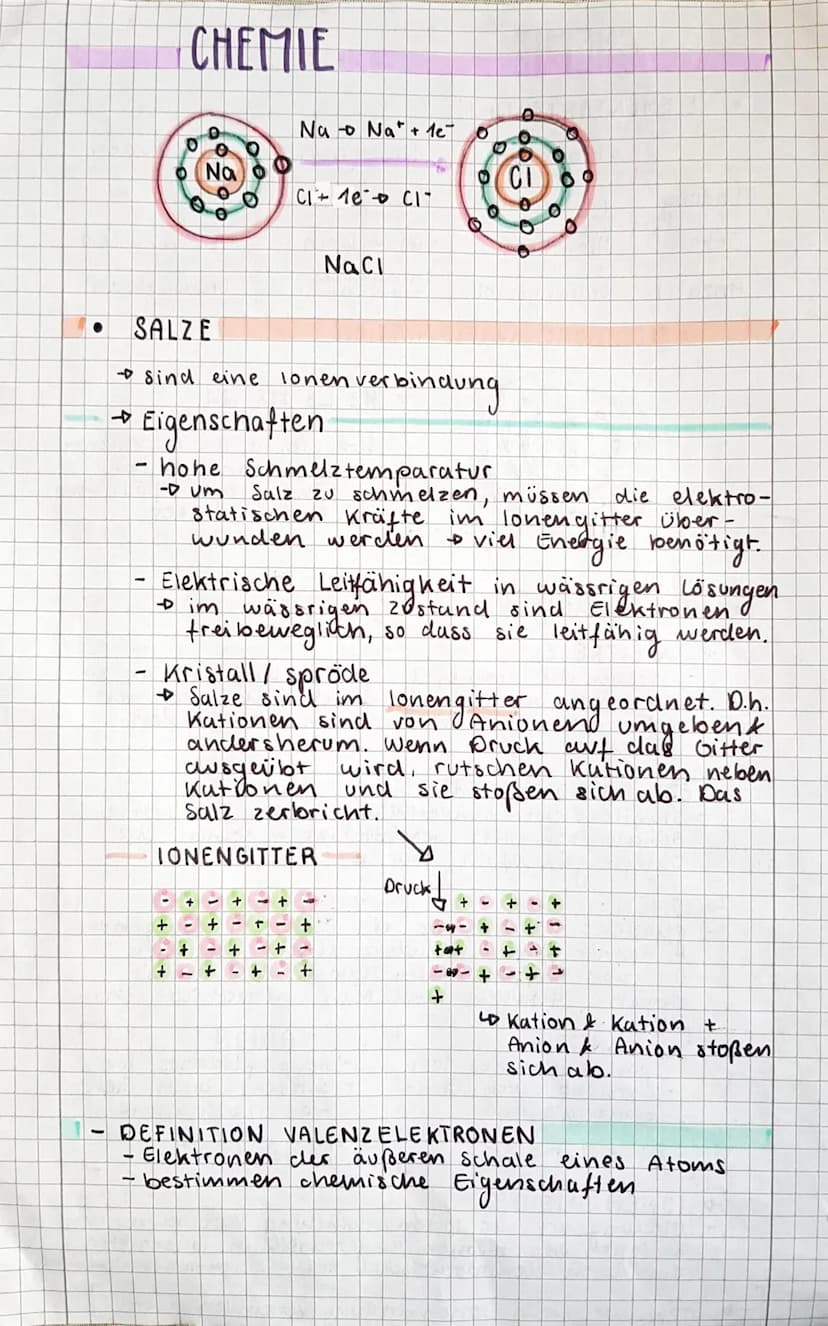 CHEMIE
Na → Na⁺ + 1e⁻
Na
Cl
Cl + 1e⁻ → Cl⁻
NaCl
• SALZE
→ sind eine Ionenverbindung
→ Eigenschaften
- hohe Schmelztemparatur
→ um Salz zu schmelzen, müssen die elektro-
statischen Kräfte im Ionengitter über-
wunden werden → viel Energie benötigt.
- Elektrische Leitfähigkeit in wässrigen Lösungen
→ im wässrigen zustand sind Elektronen
freibeweglich, so dass sie leitfähig werden.
- Kristall / spröde
→ Salze sind im Ionengitter angeordnet. D.h.
Kationen sind von Anionen umgeben &
andersherum. wenn Druck auf das Gitter
ausgeübt wird, rutschen Kationen neben
Kationen und sie stoßen sich ab. Das
Salz zerbricht.
IONENGITTER
Druck
- + - + - + -
+ - + - + - +
- + - + - + -
+ - + - + - +
+ - + - +
- - + - + -
+ + - + - +
- - + - + -
+
↳ Kation & Kation +
Anion & Anion stoßen
sich ab.
- DEFINITION VALENZELEKTRONEN
- Elektronen der äußeren Schale eines Atoms
- bestimmen chemische Eigenschaften